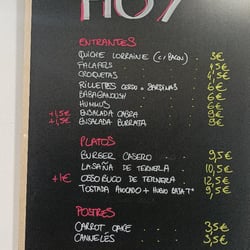 HOY
ENTRANTES
QUICHE LORRAINE (c/BACON) 3€
FALAFELS 4,5€
CROQUETAS 4,5€
RILLETTES CERDO o SARDINAS 6€
BABAGANOUSH 6€
HUMMUS 6€
+1,5€ ENSALADA CABRA 9€
+1,5€ ENSALADA BURRATA 9€
PLATOS
BURGER CASERO 9,5€
LASAÑA DE TERNERA 10,5€
+1€ OSSO BUCO DE TERNERA 12,5€
TOSTADA AVOCADO + HUEVO 9,5€
POSTRES
CARROT CAKE 3,5€
CANNELÉS 3,5€